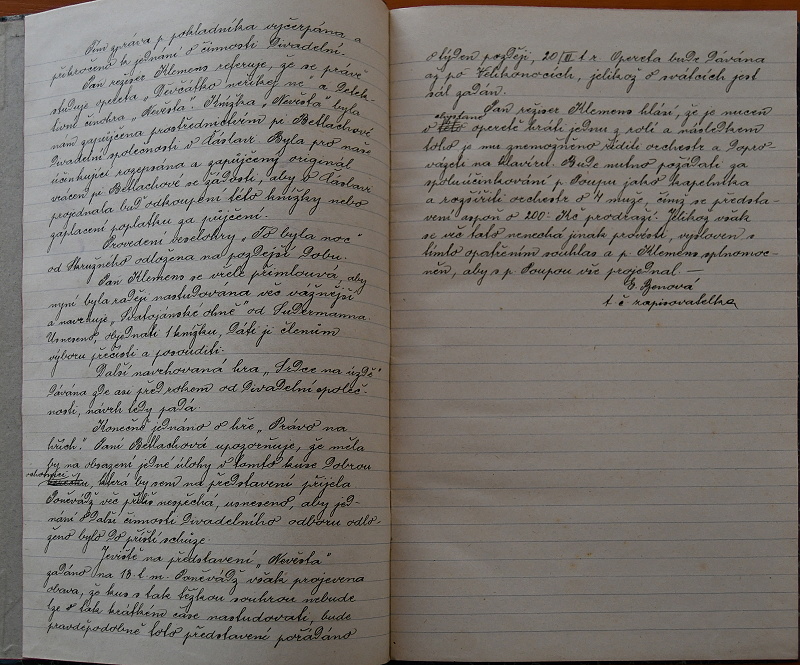 Tím zpráva p. pokladníka vyčerpána a
přikročeno k jednání o činnosti divadelní.
Pan režiser Klemens referuje, že se právě
studuje opereta „Děvčátko neříkej ne" a detek-
tivní činohra „Nevěsta". Knížka „Nevěsta" byla
nám zapůjčena prostřednictvím pí Betlachové
divadelní společnosti v Čáslavi. Byla pro naše
účinkující rozepsána a zapůjčený originál
vrácen pí Betlachové se žádostí, aby v Čáslavi
projednala buď odkoupení této knížky nebo
zaplacení poplatku za půjčení.
Provedení veselohry „To byla noc"
od Skružného odložena na pozdější dobu.
Pan Klemens se vřele přimlouvá, aby
nyní byla raději nastudována věc vážnější
a navrhuje „Svatojánské ohně" od Sudermanna.
Usneseno, objednati 1 knížku, dáti ji členům
výboru přečísti a posouditi.
Další navrhovaná hra „Srdce na uzdě"
dávána zde asi před rokem od divadelní společ-
nosti, návrh tedy padá.
Konečně jednáno o hře „Právo na
hřích". Paní Betlachová upozorňuje, že měla
by na obsazení jedné úlohy v tomto kuse dobrou
ochotnici, která by sem na představení přijela.
Poněvadž věc příliš nespěchá, usneseno, aby jed-
nání o další činnosti divadelního odboru odlo-
ženo bylo do příští schůze.
Jeviště na představení „Nevěsta"
zadáno na 13. t. m. Poněvadž však projevena
obava, že kus s tak těžkou souhrou nebude
lze v tak krátkém čase nastudovati, bude
pravděpodobně toto představení pořádáno
o týden později, 20/III t. r. Opereta bude dávána
až po Velikonocích, jelikož o svátcích jest
sál zadán.
Pan režiser Klemens hlásí, že je nucen
v operetě hráti jednu z rolí a následkem
toho je mu znemožněno říditi orchestr a dopro-
vázeti na klavíru. Bude nutno požádati za
spoluúčinkování p. Poupu jako kapelníka
a rozšířiti orchestr o 4 muže, čímž se předsta-
vení aspoň o 200 Kč prodraží. Jelikož však
se věc tato nenechá jinak provésti, vysloven s
tímto opatřením souhlas a p. Klemens splnomoc-
něn, aby s p. Poupou věc projednal. —
t. č. zapisovatelka